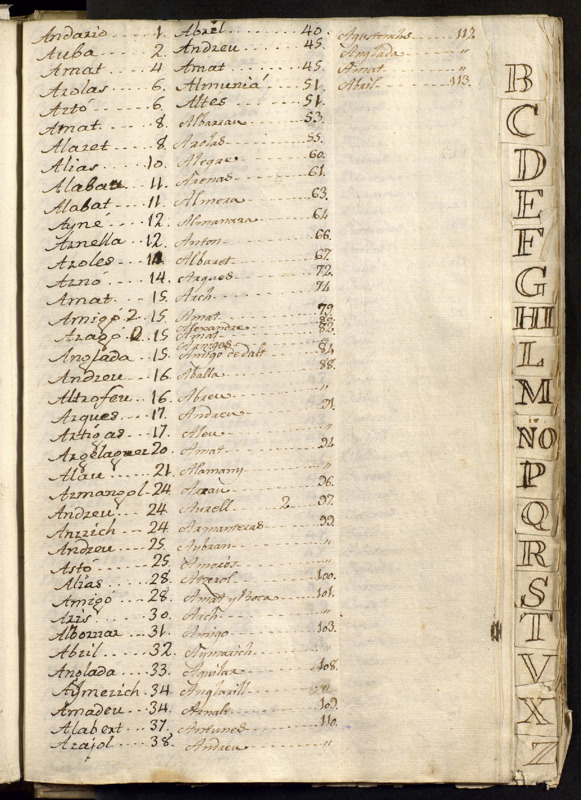 Andario 1.
Auba 2.
Amat 4
Azolas 6.
Aztó 6
Amat 8.
Alaret 8.
Alias 10.
Alabau 11.
Alabat 11.
Ayné 12.
Aznella 12.
Azoles
Aznó 14.
Amat 15.
Amigó 2 15
Azagó 2 15
Anglada 15.
Andreu 16.
Altrofeu 16.
Azques 17.
Aztigas 17.
Azgelaguer 20.
Aláu 21
Azmangol 24
Andreu 24
Anrich 24
Andreu 25.
Astó 25.
Alias 28.
Amigó 28.
Aris 30.
Albornar 31.
Abril 32.
Anglada 33.
Aymerich 34
Amadeu 34.
Alabert 37.
Azajol 38.
Abril 40.
Andreu 45.
Amat 45.
Almuniá 51.
Altes 51.
Albareau 53.
Azolas 55.
Alegre 60.
Arenas 61.
Almera 63.
Almanara 64
Anton 66.
Albaret 67.
Arques 72.
Arch 74
Amat 79
Alexandre 80.
Amat 82.
Artigas "
Amigo de dalt 84
Aballa 88.
Abreu "
Andreu 91.
Aleu "
Amat 94
Alamany "
Arrau 96.
Aurell 2 97.
Armanteras 99.
Aubran "
Amorós "
Arderol 100.
Amat y Roca 101.
Arch "
Amigo 103.
Aymarich "
Aguilar 108.
Anglarill "
Arnals 109.
Antunes 110.
Andreu "
Agustenchs 112.
Anglada "
Amat "
Abril 113.
B
C
D
E
F
G
HI
L
M
NO
P
Q
R
S
T
V
X
Z